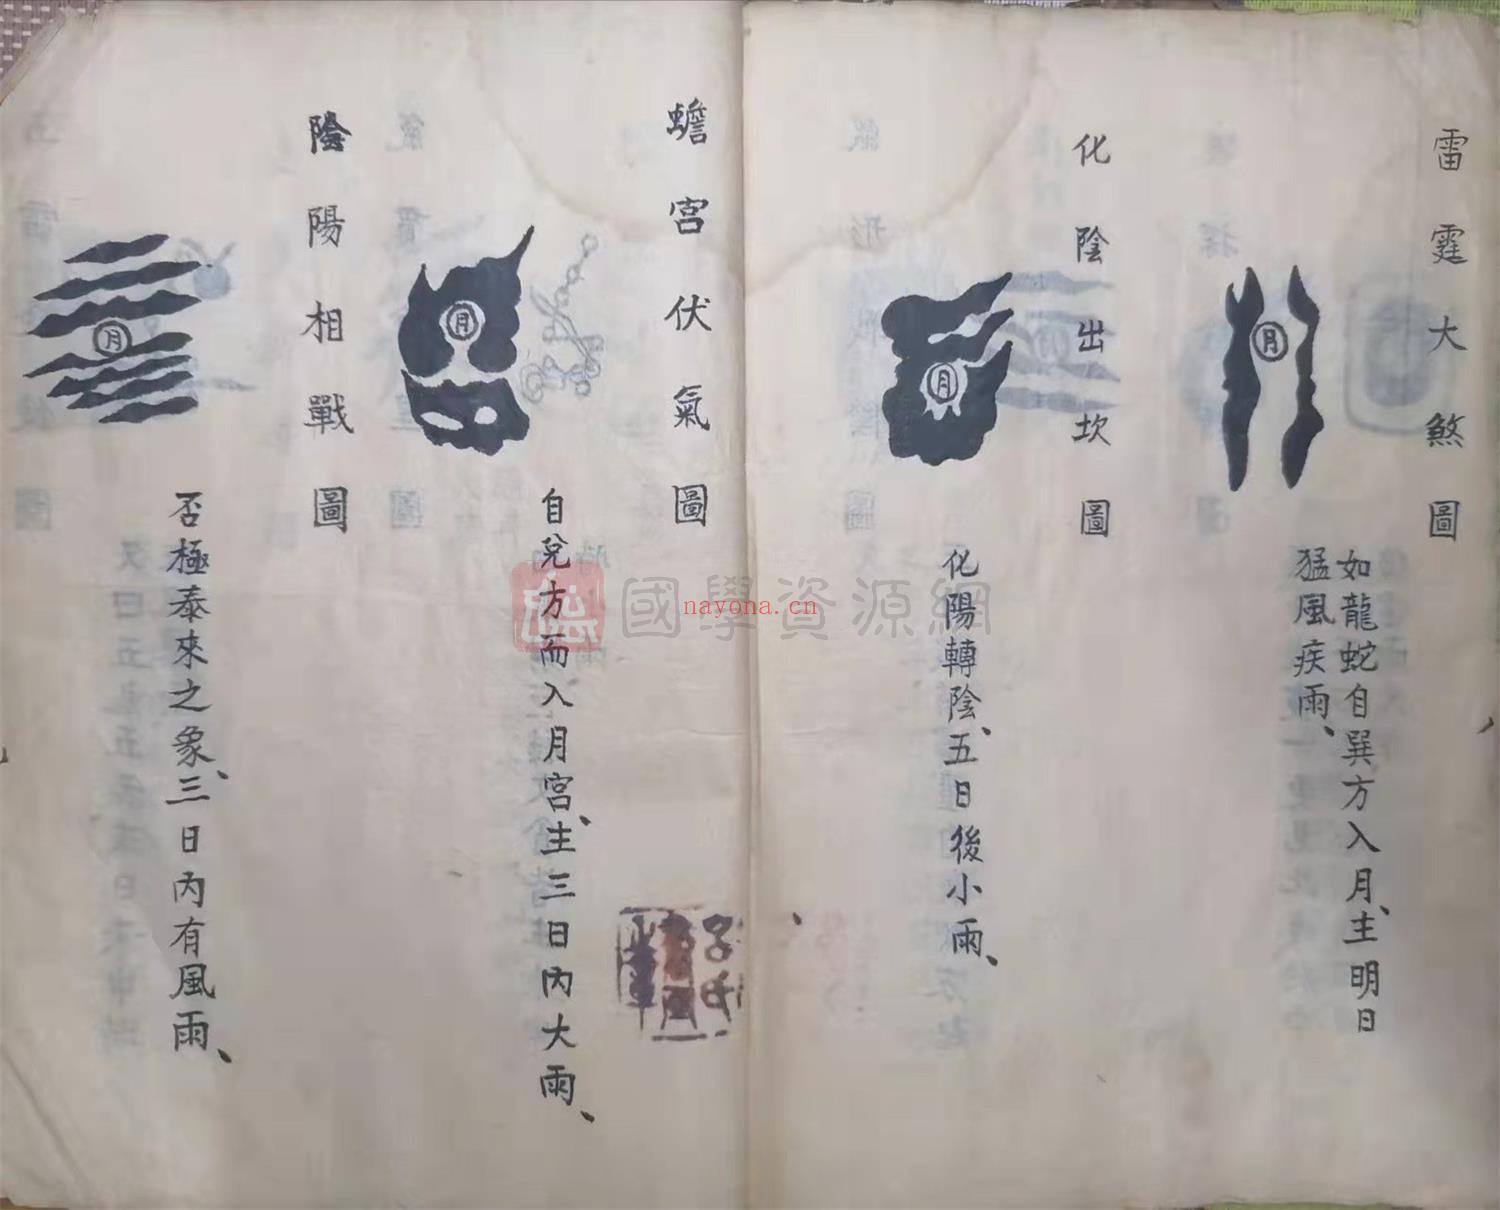 雷霆大煞圖
月
如龍蛇自巽方入月、主明日
猛風疾雨、
化陰出坎圖
月
化陽轉陰、五日後小雨、
蟾宮伏氣圖
月
自兌方而入月宮、主三日內大雨、
陰陽相戰圖
月
否極泰來之象、三日內有風雨、
國學資源網
nayona.cn